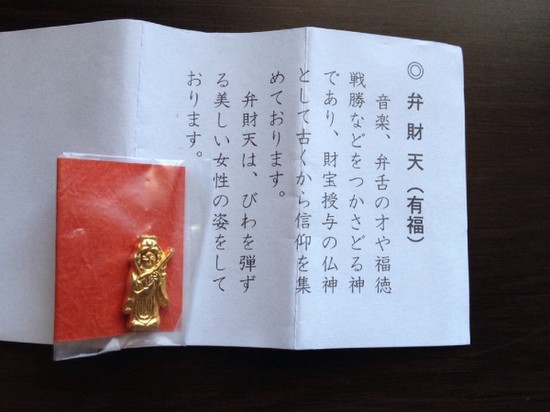 ◎ 弁財天（有福）
音楽、弁舌の才や福徳
戦勝などをつかさどる神
であり、財宝授与の仏神
として古くから信仰を集
めております。
弁財天は、びわを弾ず
る美しい女性の姿をして
おります。